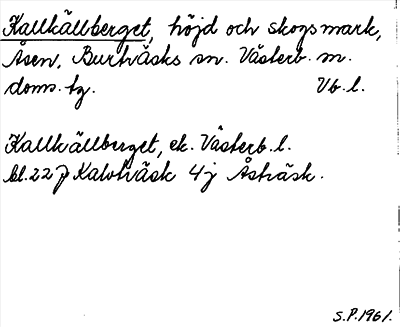 Kallkällberget, höjd och skogsmark,
Åsen, Burträsks sn. Västerb. m.
doms. tg. Vb. l.
Kallkällberget, ek. Västerb. l.
bl. 22 j Kalvträsk 4 j Åsträsk.
S.P. 1961.